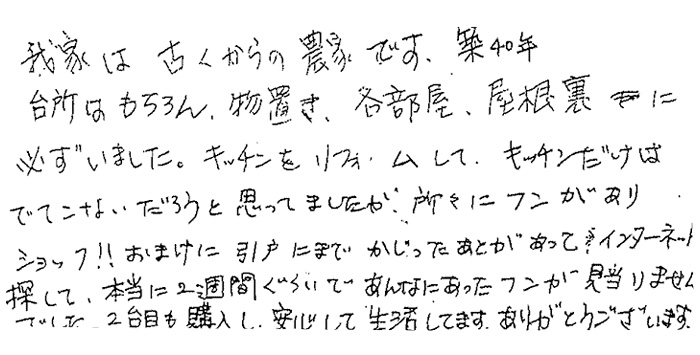 我家は古くからの農家です、築40年
台所はもちろん、物置き、各部屋、屋根裏に
必ずいました。キッチンをリフォームして、キッチンだけは
でてこないだろうと思ってましたが、所々にフンがあり
ショック!!おまけに引戸にまでかじったあとがあって、インターネット
探して、本当に2週間ぐらいであんなにあったフンが見当りません
でした。2台目も購入し、安心して生活してます。ありがとうございます。